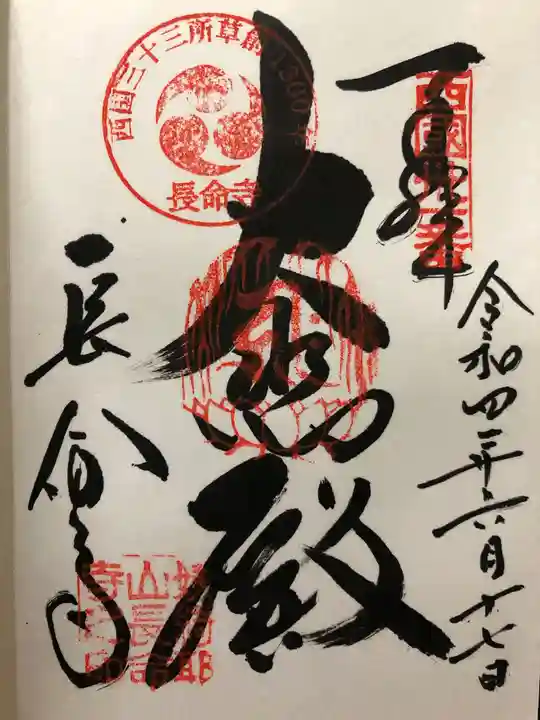 奉拝
西國卅一番
令和四年六月十七日
大悲殿
西国三十三所草創1300年
長命寺
長命寺
姨綺耶
山長命
寺之印